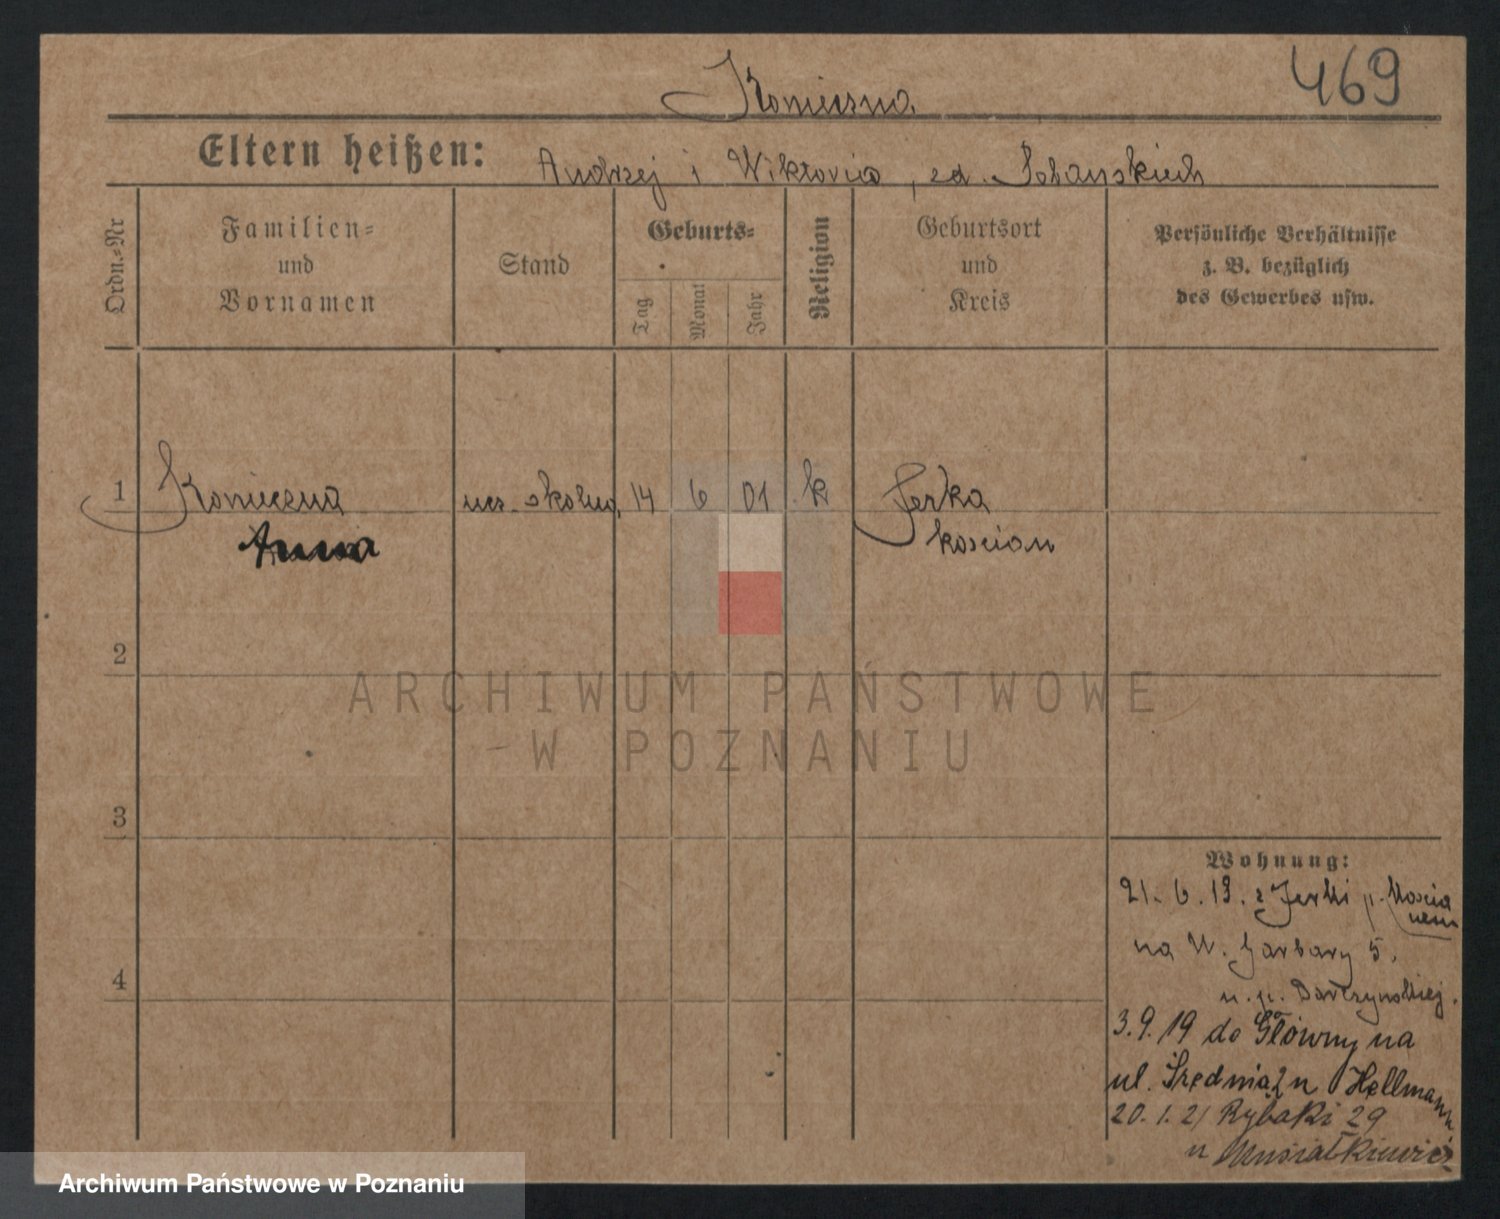 469
Konieczna
Eltern heißen: Andrzej i Wiktoria, zd. Sobańskich
Ordn.-Nr
Familien- und Vornamen
Stand
Geburts-
Tag
Monat
Jahr
Religion
Geburtsort und Kreis
Persönliche Verhältnisse z. B. bezüglich des Gewerbes usw.
1 Konieczna ucz. szkolna 14 6 01 k Jerka
Anna Kościan
2
ARCHIWUM PAŃSTWOWE
W POZNANIU
3
Wohnung:
21.6.19. z Jerki p. Kościanem
na W. Garbary 5.
u. p.
4
3.9.19 do Główny na
ul. Średnia 2 u Hellmann
20.1.21 Rybaki 29
u Musiałkiewicz
Archiwum Państwowe w Poznaniu